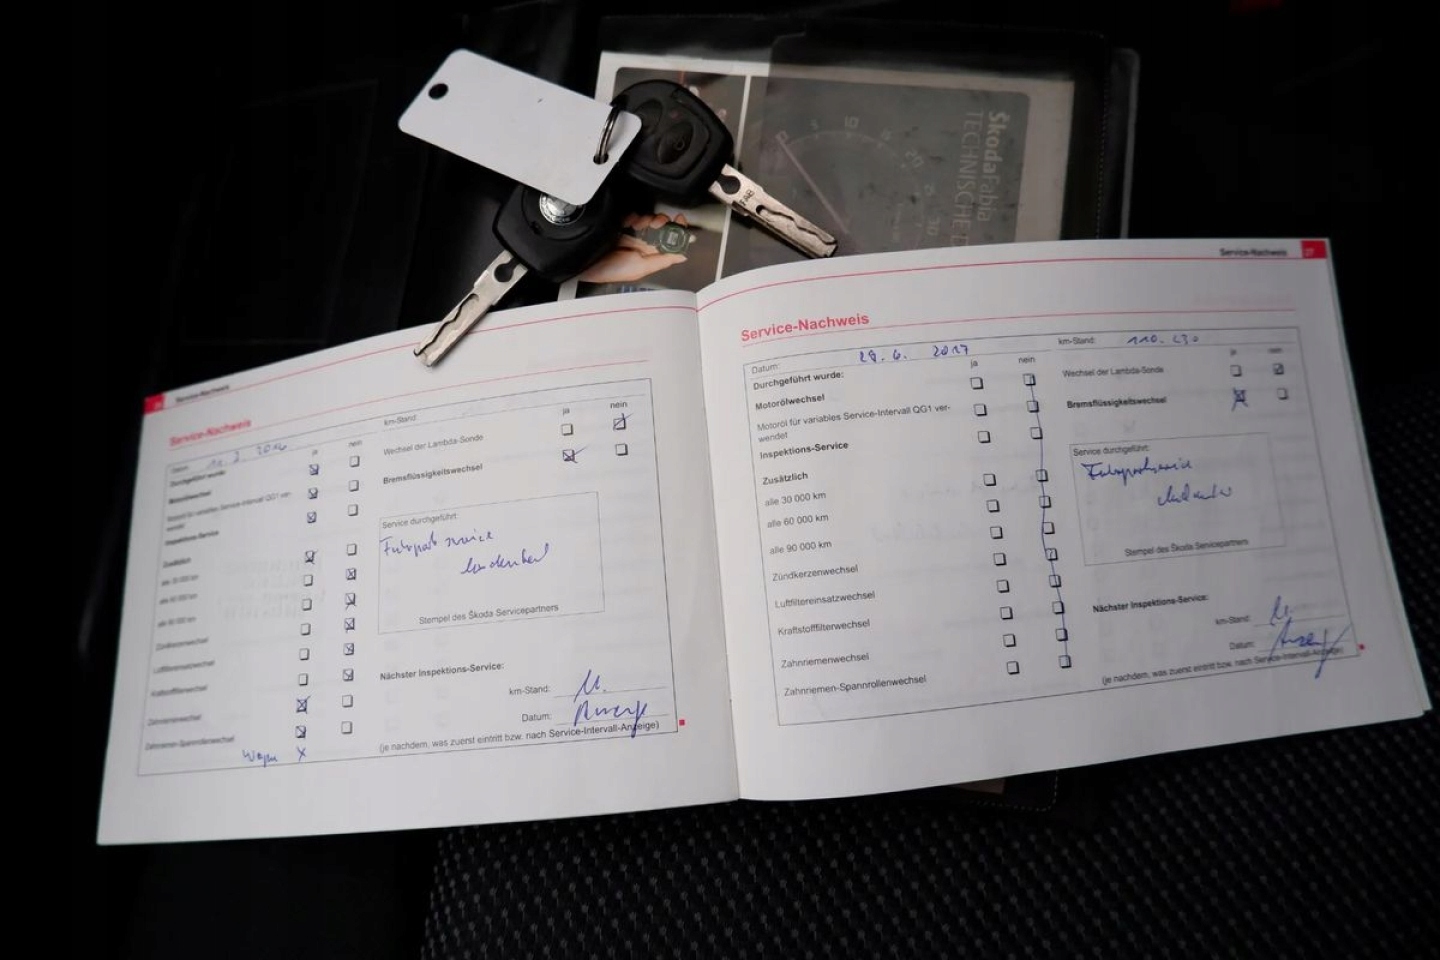 ŠkodaFabia
TECHNISCHE
Service-Nachweis
Service-Nachweis
Datum:
km-Stand:
ja
nein
ja
nein
Durchgeführt wurde:
Motorölwechsel
Motoröl für variables Service-Intervall QG1 ver-
wendet
Inspektions-Service
Zusätzlich
alle 30 000 km
alle 60 000 km
alle 90 000 km
Zündkerzenwechsel
Luftfiltereinsatzwechsel
Kraftstofffilterwechsel
Zahnriemenwechsel
Zahnriemen-Spannrollenwechsel
Wechsel der Lambda-Sonde
Bremsflüssigkeitswechsel
Service durchgeführt:
Stempel des Škoda Servicepartners
Nächster Inspektions-Service:
km-Stand:
Datum:
(je nachdem, was zuerst eintritt bzw. nach Service-Intervall-Anzeige)
Service-Nachweis
27
Service-Nachweis
Datum: 2017
km-Stand: 110.230
ja
nein
ja
nein
Durchgeführt wurde:
Motorölwechsel
Motoröl für variables Service-Intervall QG1 ver-
wendet
Inspektions-Service
Zusätzlich
alle 30 000 km
alle 60 000 km
alle 90 000 km
Zündkerzenwechsel
Luftfiltereinsatzwechsel
Kraftstofffilterwechsel
Zahnriemenwechsel
Zahnriemen-Spannrollenwechsel
Wechsel der Lambda-Sonde
Bremsflüssigkeitswechsel
Service durchgeführt:
Stempel des Škoda Servicepartners
Nächster Inspektions-Service:
km-Stand:
Datum:
(je nachdem, was zuerst eintritt bzw. nach Service-Intervall-Anzeige)